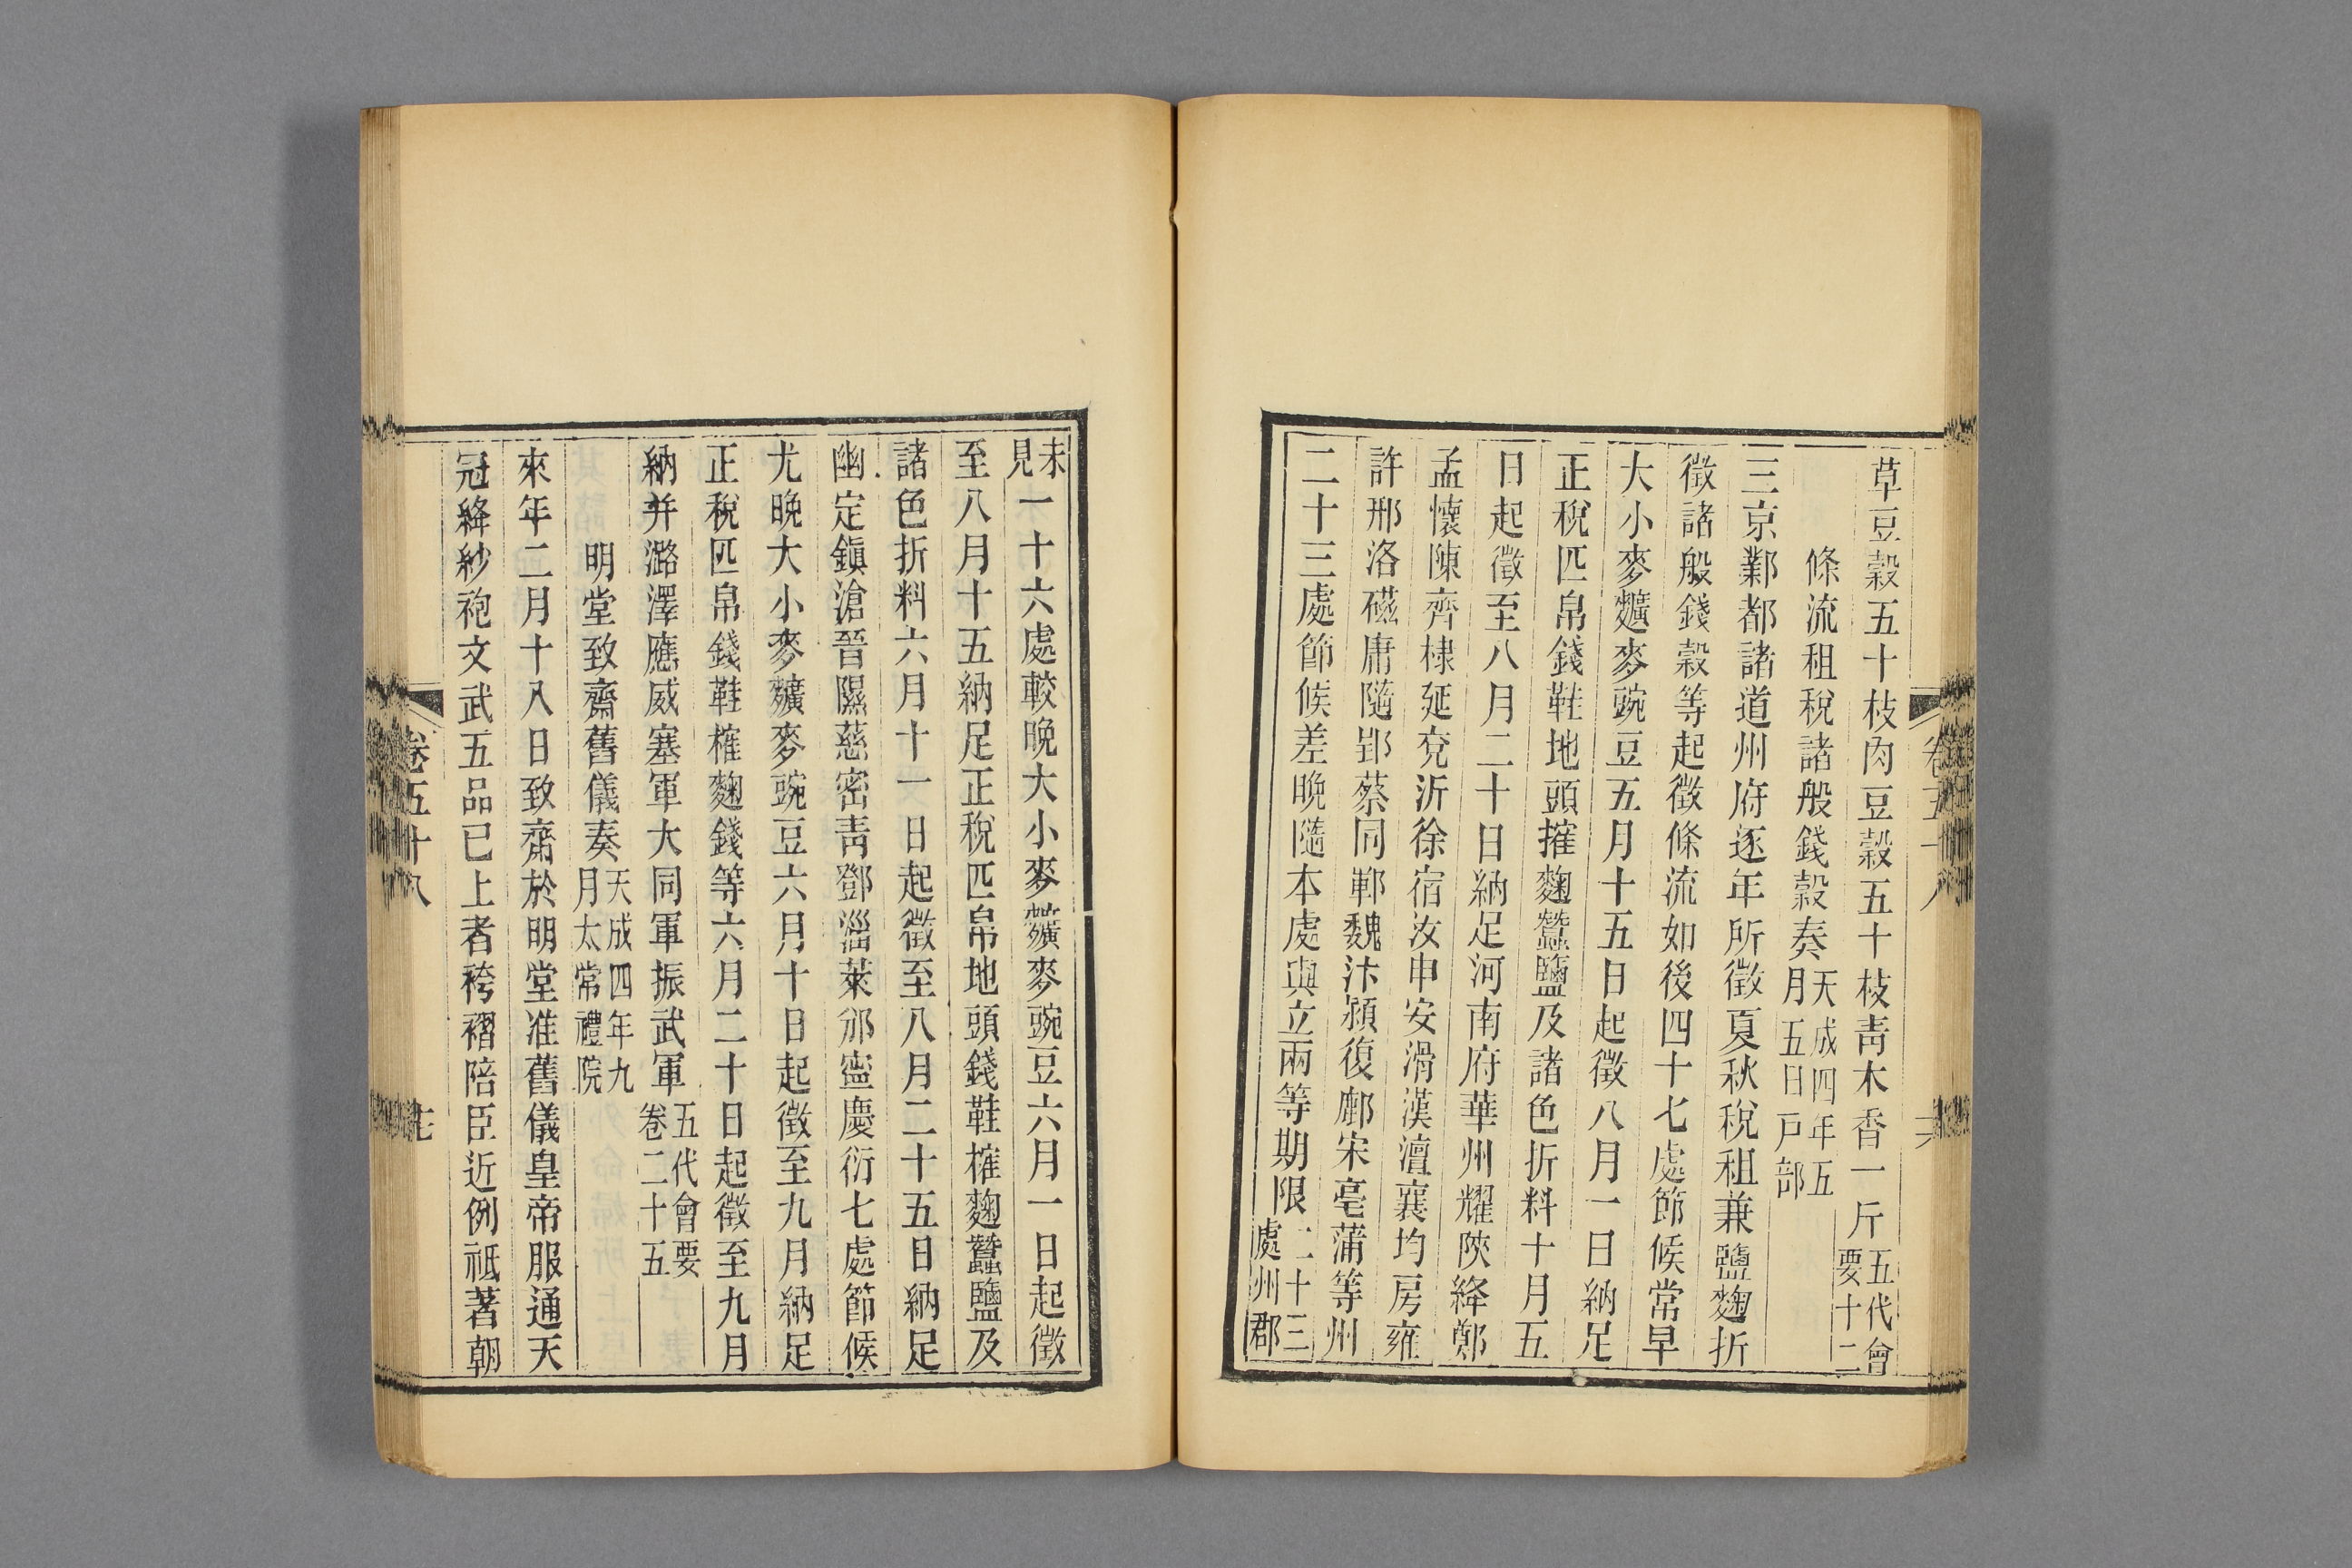 草豆蔻五十枝肉豆蔻五十枝靑木香一斤五代會
要十二
條流租稅諸般錢穀奏天成四年五
月五日戸部
三京鄴都諸道州府逐年所徵夏秋稅租兼鹽麴折
徵諸般錢穀等起徵條流如後四十七處節候常早
大小麥麯麥豌豆五月十五日起徵八月一日納足
正稅匹帛錢鞋地頭搉麴蠶鹽及諸色折料十月五
日起徵至八月二十日納足河南府華州耀陝絳鄭
孟懷陳齊棣延兗沂徐宿汶申安滑漢澶襄均房雍
許邢洛磁庸隨郢蔡同鄆魏汴潁復鄜宋亳蒲等州
二十三處節候差晚隨本處與立兩等期限二十三
處州郡
未
見一十六處較晚大小麥穬麥豌豆六月一日起徵
至八月十五納足正稅匹帛地頭錢鞋榷麴蠶鹽及
諸色折料六月十一日起徵至八月二十五日納足
幽定鎭滄晉隰慈密靑鄧淄萊邠寧慶衍七處節候
尤晚大小麥穬麥豌豆六月十日起徵至九月納足
正稅匹帛錢鞋榷麴錢等六月二十日起徵至九月
納并潞澤應威塞軍大同軍振武軍五代會要
卷二十五
明堂致齋舊儀奏天成四年九
月太常禮院
來年二月十八日致齋於明堂准舊儀皇帝服通天
冠絳紗袍文武五品已上者袴褶陪臣近例祗著朝
卷五十八